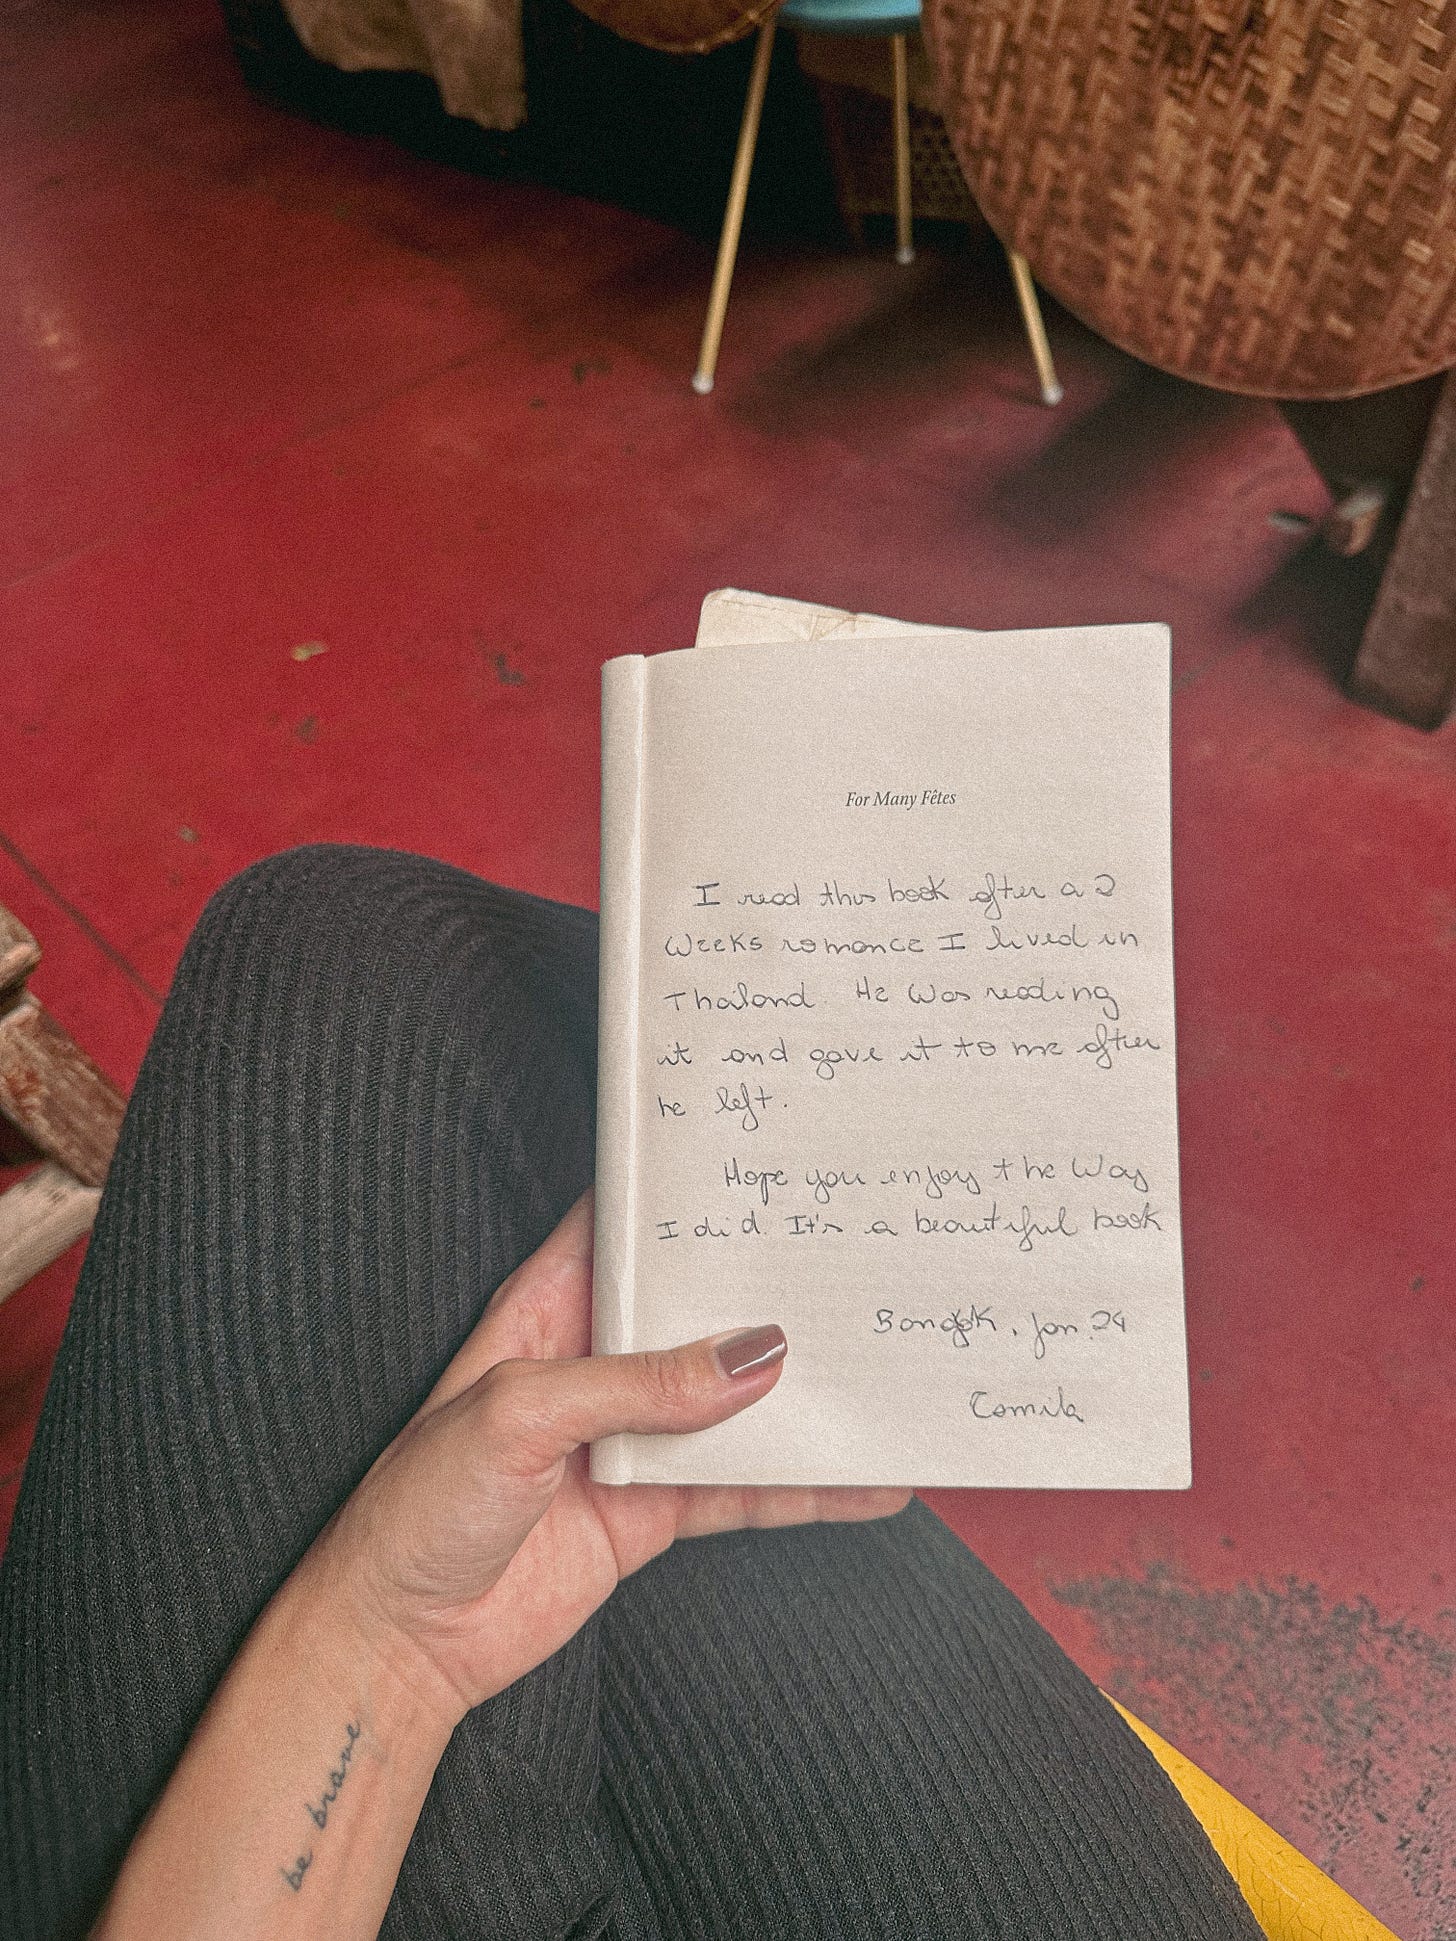 For Many Fêtes
I read this book after a 2
Weeks romance I lived in
Thailand. He was reading
it and gave it to me after
he left.
Hope you enjoy the way
I did. It's a beautiful book
Bangkok, Jan. 24
Camila
be brave